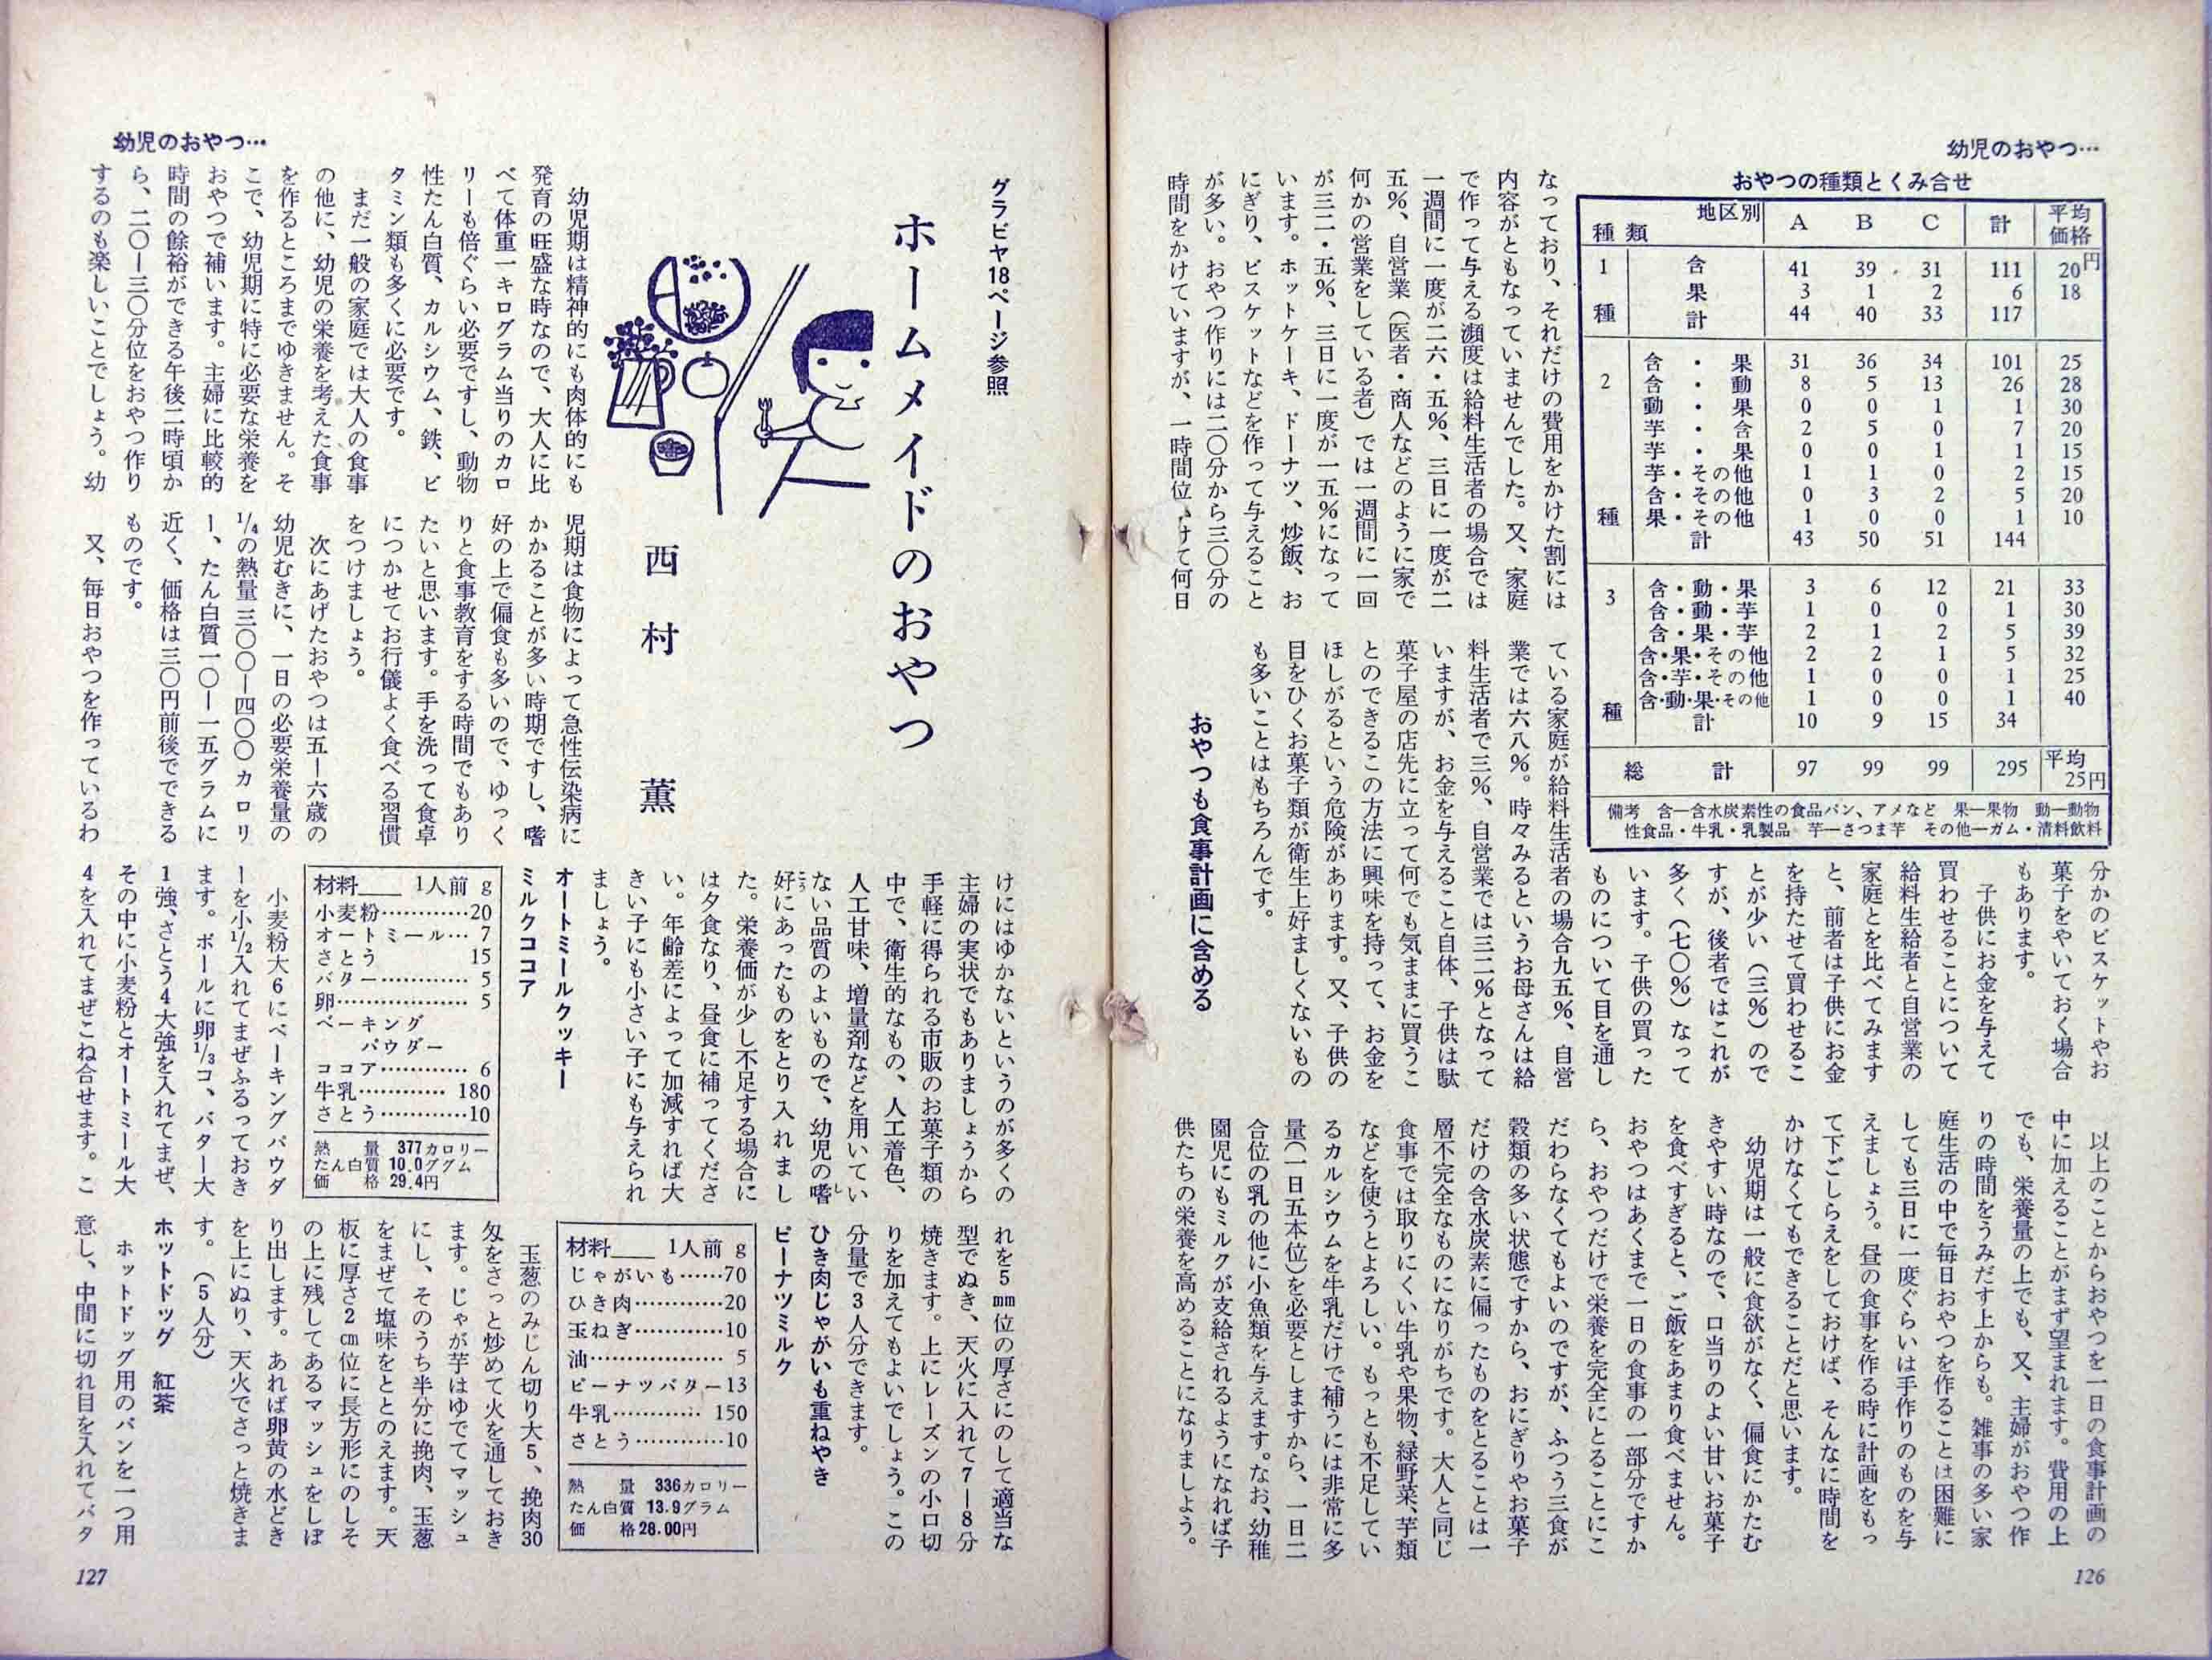 幼児のおやつ…
おやつの種類とくみ合せ
種類 地区別 A B C 計 平均価格
1種 含 41 39 31 111 20円
果 3 1 2 6 18
計 44 40 33 117
2種 含・果 31 36 34 101 25
含・動 8 5 13 26 28
動・果 0 0 1 1 30
芋・含 2 5 0 7 20
芋・果 0 0 1 1 15
芋・その他 1 1 0 2 15
含・その他 0 3 2 5 20
果・その他 1 0 0 1 10
計 43 50 51 144
3種 含・動・果 3 6 12 21 33
含・動・芋 1 0 0 1 30
含・果・芋 2 1 2 5 39
含・果・その他 2 2 1 5 32
含・芋・その他 1 0 0 1 25
含・動・果・その他 1 0 0 1 40
計 10 9 15 34
総計 97 99 99 295 平均25円
備考 含―含水炭素性の食品パン、アメなど 果―果物 動―動物
性食品・牛乳・乳製品 芋―さつま芋 その他―ガム・清料飲料
なっており、それだけの費用をかけた割には
内容がともなっていませんでした。又、家庭
で作って与える瀕度は給料生活者の場合では
一週間に一度が二六・五％、三日に一度が二
五％、自営業（医者・商人などのように家で
何かの営業をしている者）では一週間に一回
が三二・五％、三日に一度が一五％になって
います。ホットケーキ、ドーナツ、炒飯、お
にぎり、ビスケットなどを作って与えること
が多い。おやつ作りには二〇分から三〇分の
時間をかけていますが、一時間位かけて何日
分かのビスケットやお
菓子をやいておく場合
もあります。
子供にお金を与えて
買わせることについて
給料生給者と自営業の
家庭とを比べてみます
と、前者は子供にお金
を持たせて買わせるこ
とが少い（三％）ので
すが、後者ではこれが
多く（七〇％）なって
います。子供の買った
ものについて目を通し
ている家庭が給料生活者の場合九五％、自営
業では六八％。時々みるというお母さんは給
料生活者で三％、自営業では三二％となって
いますが、お金を与えること自体、子供は駄
菓子屋の店先に立って何でも気ままに買うこ
とのできるこの方法に興味を持って、お金を
ほしがるという危険があります。又、子供の
目をひくお菓子類が衛生上好ましくないもの
も多いことはもちろんです。
おやつも食事計画に含める
以上のことからおやつを一日の食事計画の
中に加えることがまず望まれます。費用の上
でも、栄養量の上でも、又、主婦がおやつ作
りの時間をうみだす上からも。雑事の多い家
庭生活の中で毎日おやつを作ることは困難に
しても三日に一度ぐらいは手作りのものを与
えましょう。昼の食事を作る時に計画をもっ
て下ごしらえをしておけば、そんなに時間を
かけなくてもできることだと思います。
幼児期は一般に食欲がなく、偏食にかたむ
きやすい時なので、口当りのよい甘いお菓子
を食べすぎると、ご飯をあまり食べません。
おやつはあくまで一日の食事の一部分ですか
ら、おやつだけで栄養を完全にとることにこ
だわらなくてもよいのですが、ふつう三食が
穀類の多い状態ですから、おにぎりやお菓子
だけの含水炭素に偏ったものをとることは一
層不完全なものになりがちです。大人と同じ
食事では取りにくい牛乳や果物、緑野菜、芋類
などを使うとよろしい。もっとも不足してい
るカルシウムを牛乳だけで補うには非常に多
量（一日五本位）を必要としますから、一日二
合位の乳の他に小魚類を与えます。なお、幼稚
園児にもミルクが支給されるようになれば子
供たちの栄養を高めることになりましょう。
126
幼児のおやつ…
グラビヤ18ページ参照
ホームメイドのおやつ
西村薫
幼児期は精神的にも肉体的にも
発育の旺盛な時なので、大人に比
べて体重一キログラム当りのカロ
リーも倍ぐらい必要ですし、動物
性たん白質、カルシウム、鉄、ビ
タミン類も多くに必要です。
まだ一般の家庭では大人の食事
の他に、幼児の栄養を考えた食事
を作るところまでゆきません。そ
こで、幼児期に特に必要な栄養を
おやつで補います。主婦に比較的
時間の餘裕ができる午後二時頃か
ら、二〇―三〇分位をおやつ作り
するのも楽しいことでしょう。幼
児期は食物によって急性伝染病に
かかることが多い時期ですし、嗜
好の上で偏食も多いので、ゆっく
りと食事教育をする時間でもあり
たいと思います。手を洗って食卓
につかせてお行儀よく食べる習慣
をつけましょう。
次にあげたおやつは五―六歳の
幼児むきに、一日の必要栄養量の
1/4の熱量三〇〇―四〇〇カロリ
ー、たん白質一〇―一五グラムに
近く、価格は三〇円前後でできる
ものです。
又、毎日おやつを作っているわ
けにはゆかないというのが多くの
主婦の実状でもありましょうから
手軽に得られる市販のお菓子類の
中で、衛生的なもの、人工着色、
人工甘味、増量剤などを用いてい
ない品質のよいもので、幼児の嗜し
好こうにあったものをとり入れまし
た。栄養価が少し不足する場合に
は夕食なり、昼食に補ってくださ
い。年齢差によって加減すれば大
きい子にも小さい子にも与えられ
ましょう。
オートミールクッキー
ミルクココア
材料＿＿ 1人前 g
小麦粉…………20
オートミール…7
さとう 15
バター…………5
卵………………5
ベーキング
パウダー
ココア…………6
牛乳…………180
さとう…………10
熱量 377カロリー
たん白質 10.0ググム
価格 29.4円
小麦粉大6にベーキングパウダ
ーを小1/2入れてまぜふるっておき
ます。ボールに卵1/3コ、バター大
1強、さとう4大強を入れてまぜ、
その中に小麦粉とオートミール大
4を入れてまぜこね合せます。こ
れを5mm位の厚さにのして適当な
型でぬき、天火に入れて7―8分
焼きます。上にレーズンの小口切
りを加えてもよいでしょう。この
分量で3人分できます。
ひき肉じゃがいも重ねやき
ピーナツミルク
材料＿＿ 1人前 g
じゃがいも……70
ひき肉…………20
玉ねぎ…………10
油………………5
ピーナツバター13
牛乳…………150
さとう…………10
熱量 336カロリー
たん白質 13.9グラム
価格28.00円
玉葱のみじん切り大5、挽肉30
匁をさっと炒めて火を通しておき
ます。じゃが芋はゆでてマッシュ
にし、そのうち半分に挽肉、玉葱
をまぜて塩味をととのえます。天
板に厚さ2cm位に長方形にのしそ
の上に残してあるマッシュをしぼ
り出します。あれば卵黄の水どき
を上にぬり、天火でさっと焼きま
す。（5人分）
ホットドッグ 紅茶
ホットドッグ用のパンを一つ用
意し、中間に切れ目を入れてバタ
127